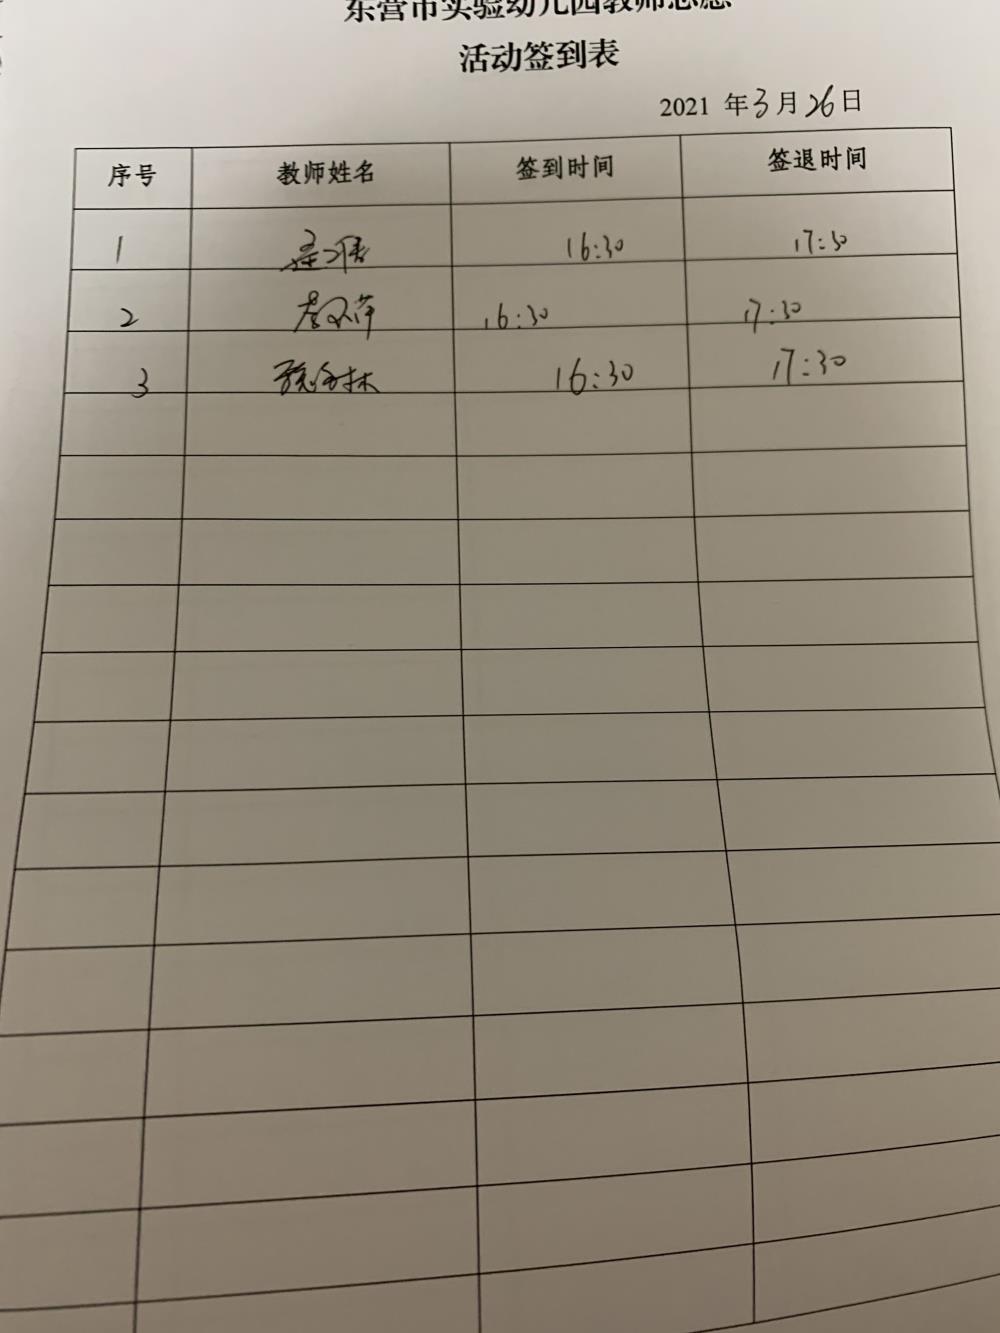 东营市实验幼儿园教师志愿
活动签到表
2021 年3月26日
序号 教师姓名 签到时间 签退时间
1 16:30 17:30
2 16:30 17:30
3 16:30 17:30